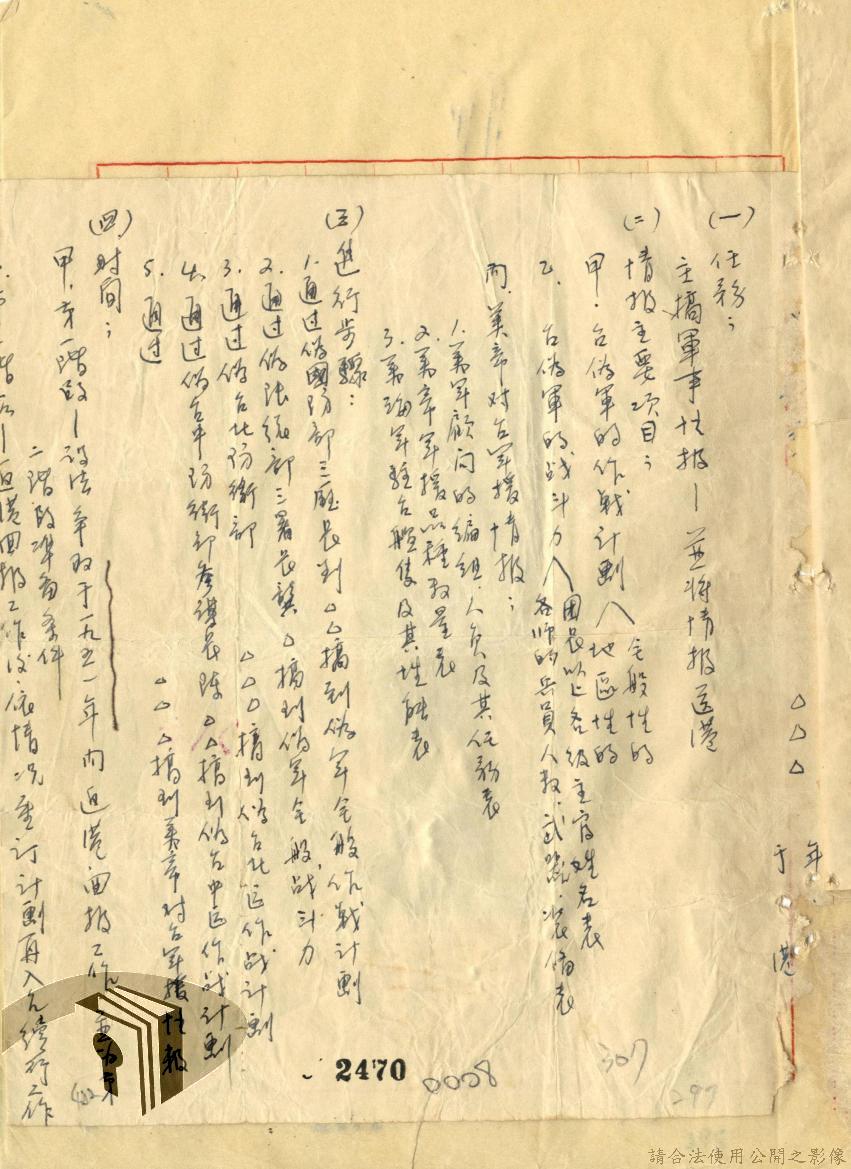 △△△
年
于 港
(一) 任務：
主搞軍事情报—並將情报送港
(二) 情报主要项目：
甲. 台偽軍的作戰计劃 全般性的
地區性的
乙. 台偽軍的战斗力 团長以上各级主官姓名表
各师的兵員人数.武器.装備表
丙. 美帝对台軍援情报：
1. 美軍顧问的編组.人员及其任務表
2. 美帝軍援品種数量表
3. 美海軍駐台艦隻及其性能表
(三) 進行步驟：
1. 通过偽國防部三廳長刘△△搞到偽軍全般作戰计劃
2. 通过偽陆總部三署長龔△搞到偽軍全般战斗力
3. 通过偽台北防衛部△△△搞到偽台北區作战计劃
4. 通过偽台中防衛部參謀長陈△△搞到偽台中區作战计劃
5. 通过 △△△搞到美帝对台軍援情報
(四) 时间：
甲. 第一階段—设法争取于一九五一年内返港囬报工作.並为第
二階段準备条件
階段—返港囬报工作後.底情况重订计劃再入台續行工作
2470
0008
307
297
請合法使用公開之影像